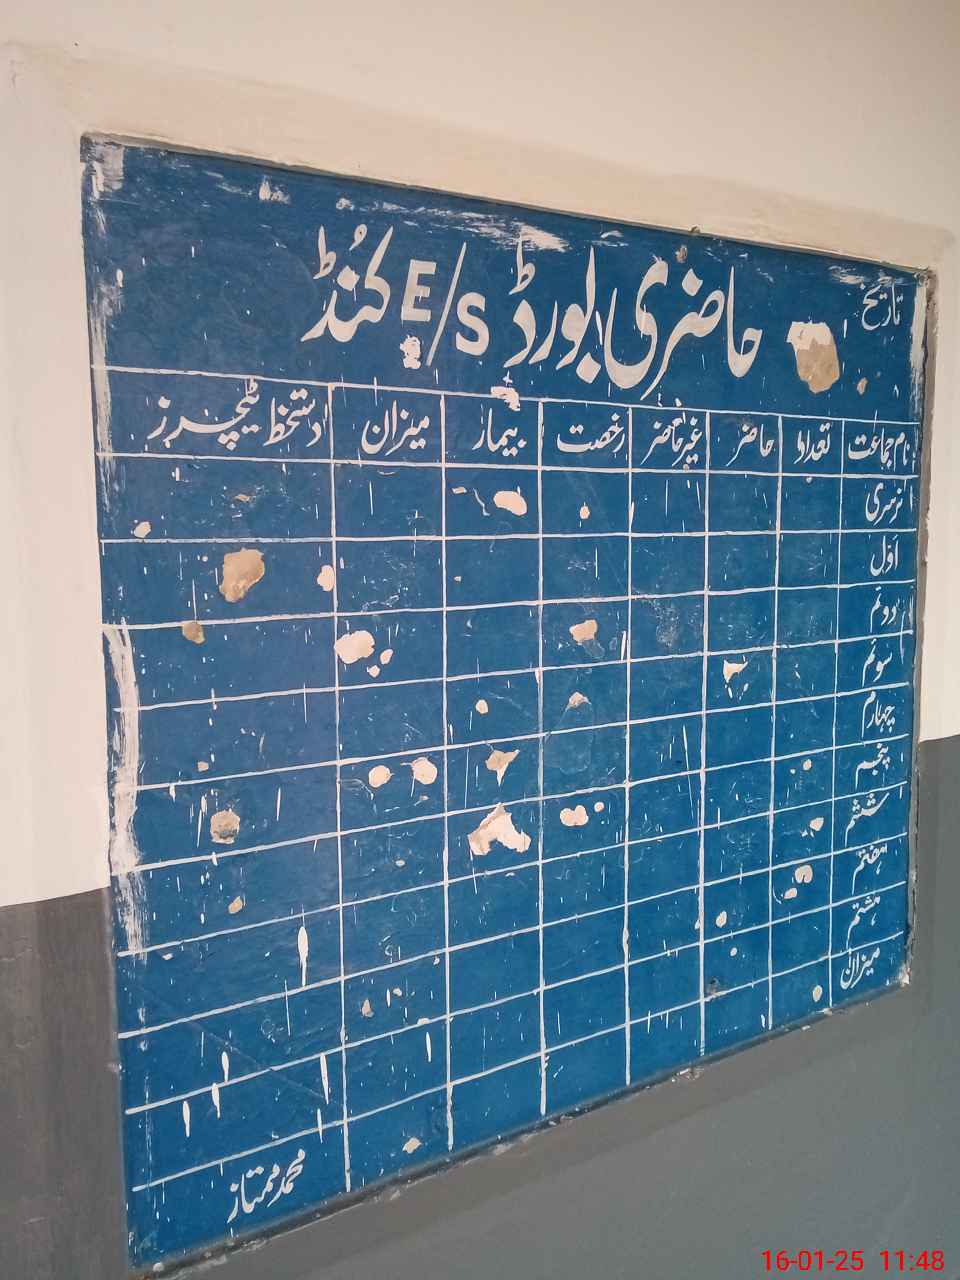 تاریخ
حاضری بورڈ E/S کنڈ
نام جماعت تعداد حاضر غیر حاضر رخصت بیمار میزان دستخط ٹیچرز
نرسری
اول
دوئم
سوئم
چہارم
پنجم
ششم
ہفتم
ہشتم
میزان
محمد ممتاز
16-01-25 11:48